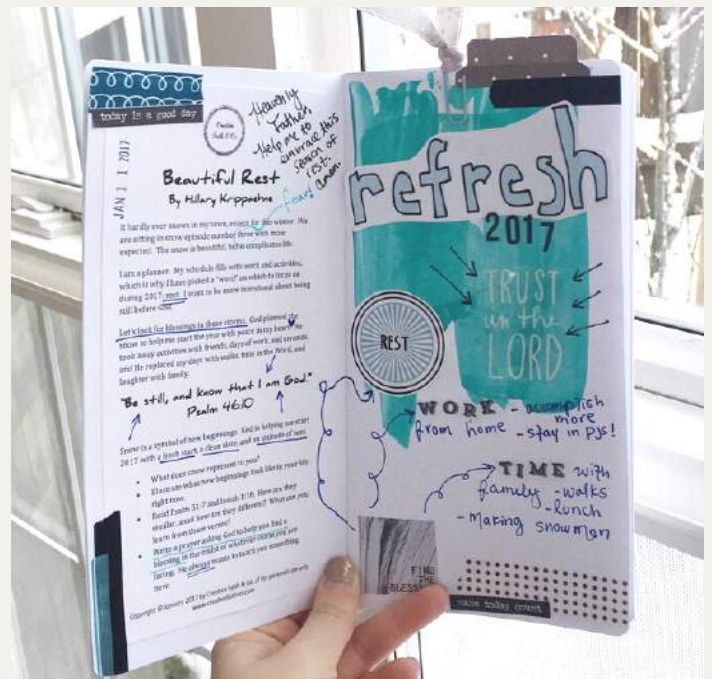 today is a good day
JAN 11 2017
Heavenly
Father,
Help me to
embrace this
season of
rest.
amen.
Beautiful Rest
By Hillary Krippaehne
It hardly ever snows in my town, except for this winter. We
are sitting in snow episode number three with more
expected. The snow is beautiful, yet it complicates life.
I am a planner. My schedule fills with work and activities,
which is why I have picked a "word" on which to focus on
during 2017: rest. I want to be more intentional about being
still before God.
Let's look for blessings in these storms. God planned the
snow to help me start the year with peace in my heart. He
took away activities with friends, days of work, and errands,
and He replaced my days with walks, time in the Word, and
laughter with family.
"Be still, and know that I am God."
Psalm 46:10
Snow is a symbol of new beginnings. God is helping me start
2017 with a fresh start, a clean slate, and an attitude of rest.
• What does snow represent to you?
• Illustrate what new beginnings look like in your life
right now.
• Read Psalm 51:7 and Isaiah 1:18. How are they
similar, and how are they different? What can you
learn from those verses?
• Write a prayer asking God to help you find a
blessing in the midst of whatever storm you are
facing. He always wants to teach you something
new.
refresh
2017
TRUST
in the
LORD
REST
WORK - accomplish
more
from home - stay in pjs!
TIME with
family - walks
- lunch
- making snowman
FIND
THE
BLESS
make today count